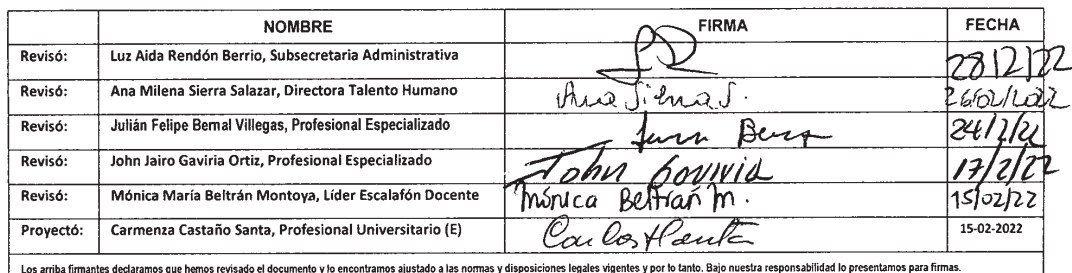 NOMBRE FIRMA FECHA
Revisó: Luz Aida Rendón Berrio, Subsecretaria Administrativa 28/2/22
Revisó: Ana Milena Sierra Salazar, Directora Talento Humano Ana Sierra S. 26/02/2022
Revisó: Julián Felipe Bernal Villegas, Profesional Especializado 24/2/22
Revisó: John Jairo Gaviria Ortiz, Profesional Especializado John Gaviria 17/2/22
Revisó: Mónica María Beltrán Montoya, Líder Escalafón Docente Mónica Beltrán M. 15/02/22
Proyectó: Carmenza Castaño Santa, Profesional Universitario (E) 15-02-2022
Los arriba firmantes declaramos que hemos revisado el documento y lo encontramos ajustado a las normas y disposiciones legales vigentes y por lo tanto. Bajo nuestra responsabilidad lo presentamos para firmas.